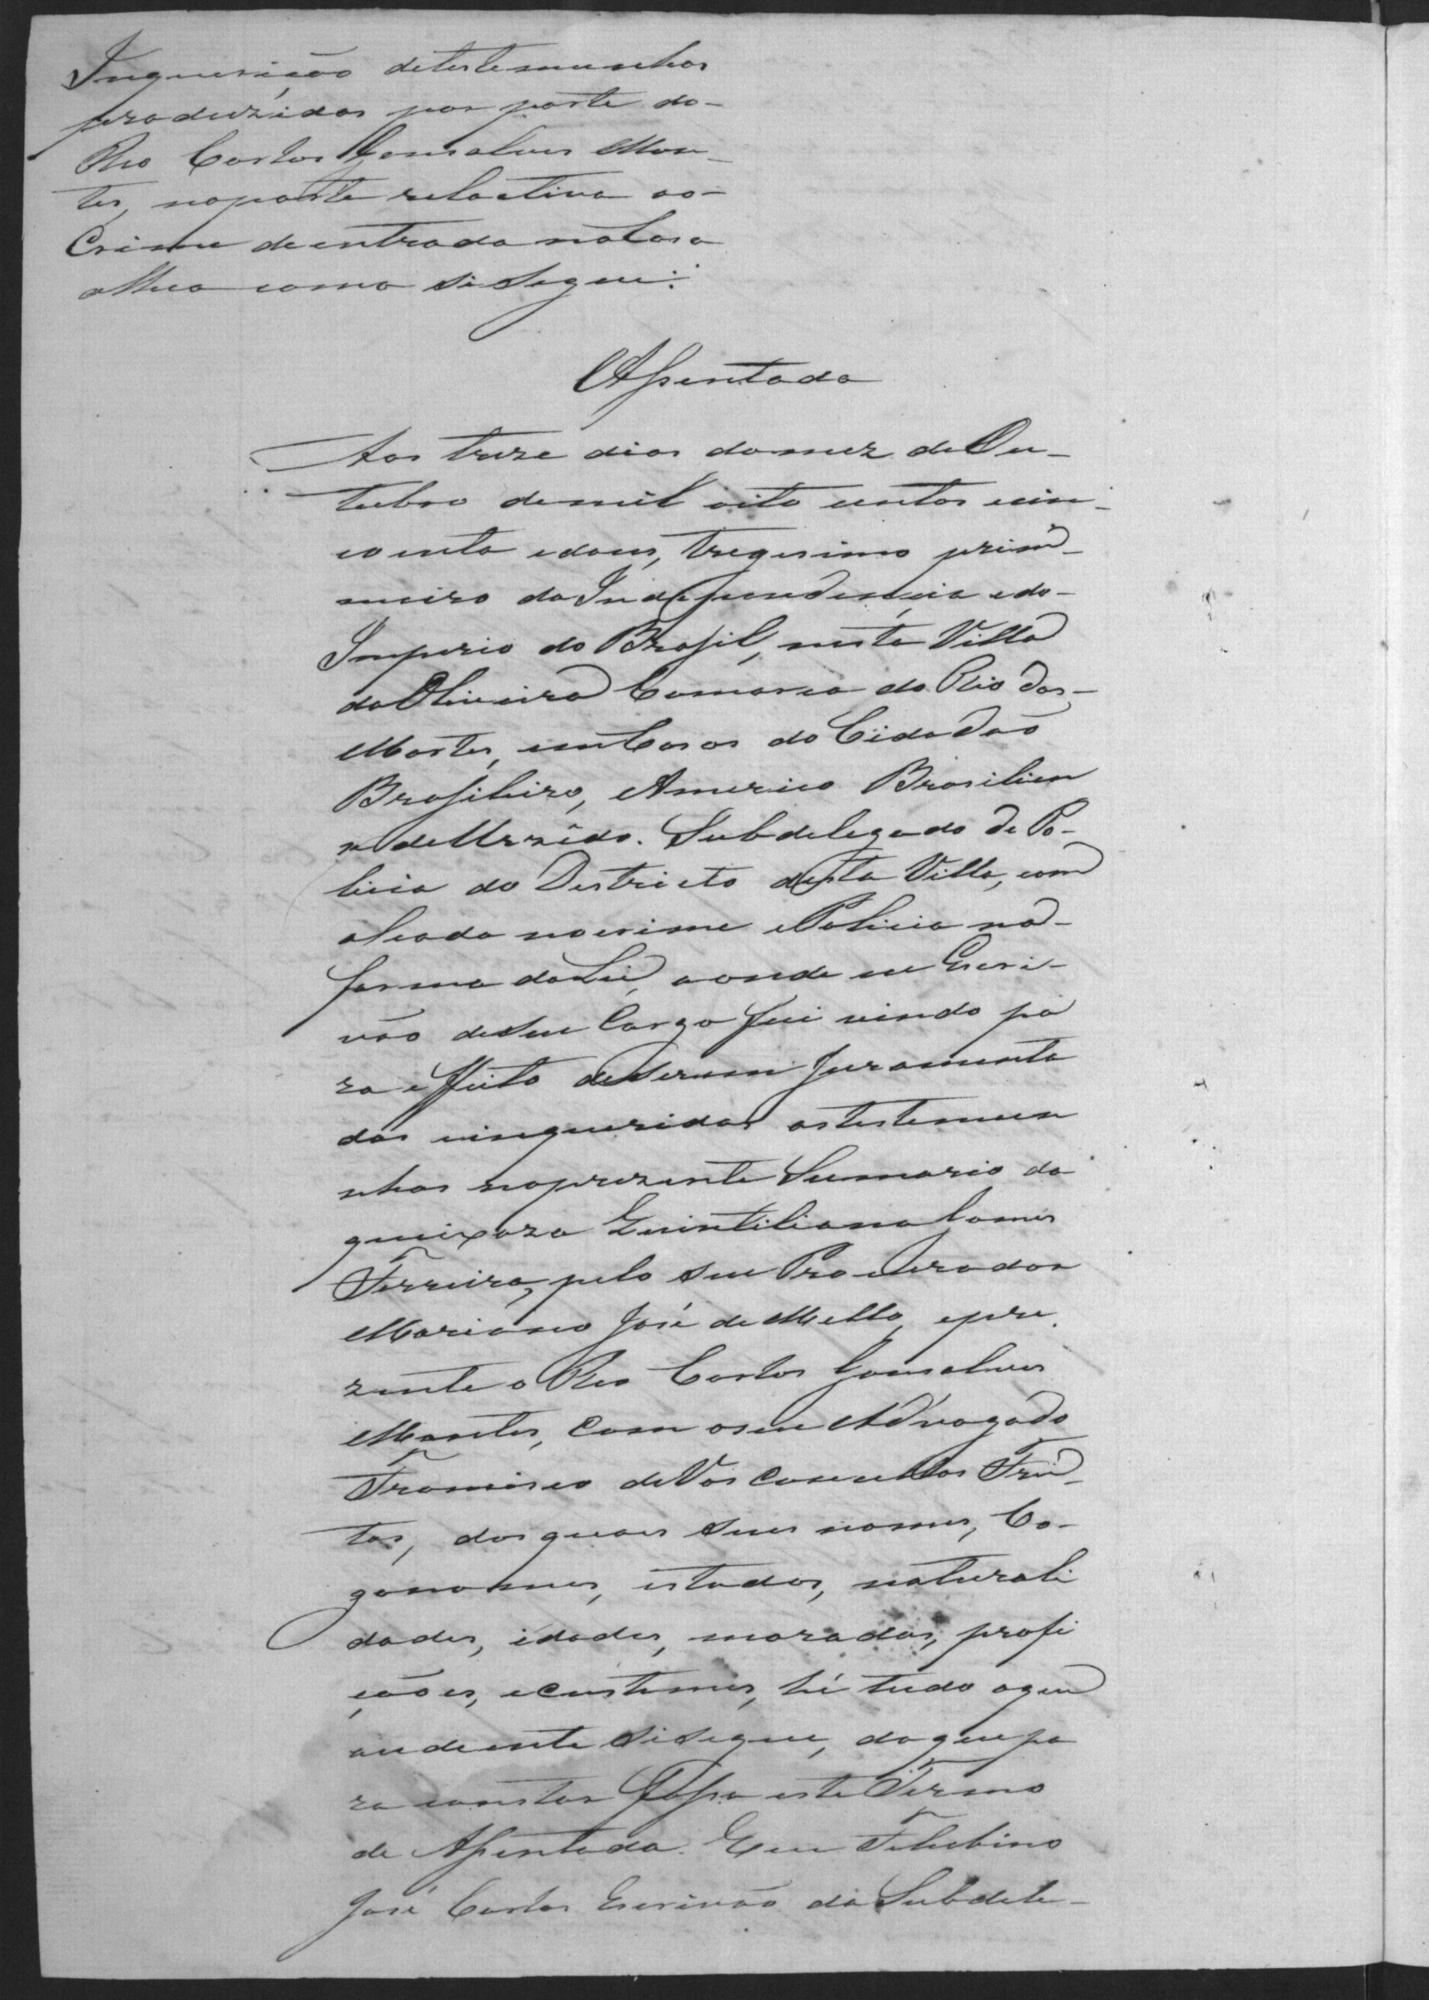 Inquerição detestemunhas
produzidas por parte do-
Reo Carlos Gonsalves Mon-
tes, naparte relactiva ao-
Crime de entrada na Casa
alhea como Sesegue:
Assentada
Aos treze dias domez de Ou-
tubro demil oito centos cin-
coenta edous, tregesimo prim-
meiro da Independencia edo-
Imperio do Brasil, nesta Villa
da Oliveira Comarca do Rio das-
Mortes, em Casas do Cidadão
Brasileiro, Americo Brasilien
se de Subdelegado de Po-
licia do Destricto desta Villa, com
alçada nocrime ePolicia na-
forma da Lei, aonde eu Escri-
vão deseu Cargo fui vindo pa
ra effeito deserem juramenta
das einqueridas astestemun
nhas noprezente Sumario da
queixoza Quintiliana Gomes
Ferreira, pelo seu Procurador
Mariano José de Mello, epre.
zente o Reo Carlos Gonsalves
Montes, com oseu Advogado
Francisco de Vasconcellos Frei-
tas, dasquaes seus nomes, Co-
gonomes, estados, naturali
dades, idades, moradas, profi
ções, ecustumes, hé tudo oque
audiente Sesegue, doquepa
ra constar faço este Termo
de Assentada. Eu Felisbino
José Carlos Escrivão da Subdele-